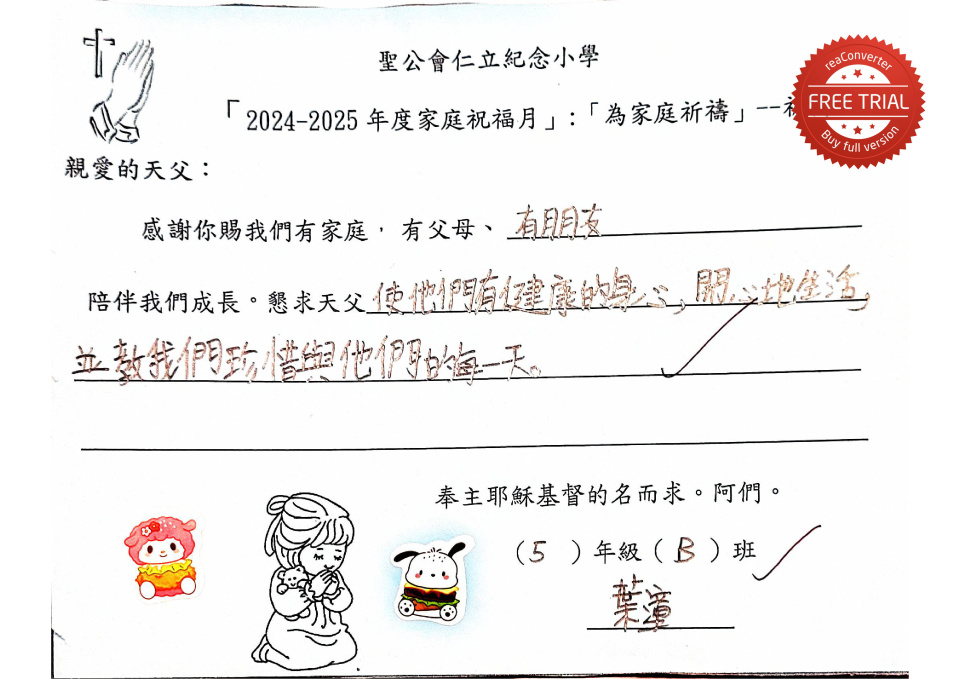 聖公會仁立紀念小學
「2024-2025 年度家庭祝福月」:「為家庭祈禱」--
reaConverter
FREE TRIAL
Buy full version
親愛的天父：
感謝你賜我們有家庭， 有父母、 有朋友
陪伴我們成長。懇求天父使他們有健康的身心，開心地生活，
並教我們珍惜與他們的每一天。
奉主耶穌基督的名而求。阿們。
（5 ）年級（B ）班
葉